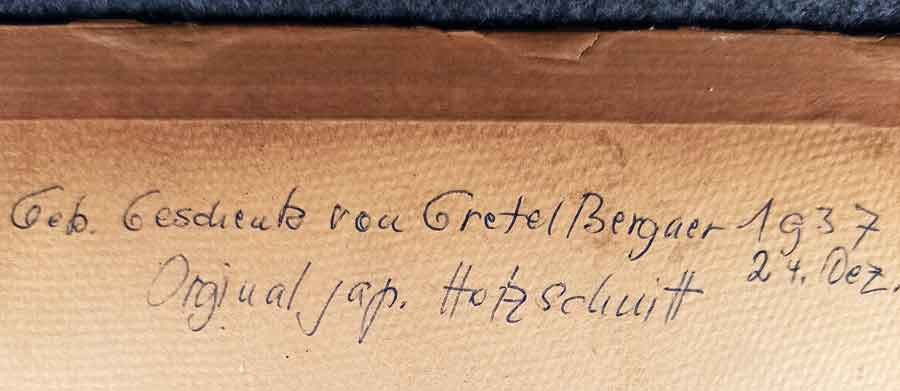 Geb. Geschenk von Gretel Bergner 1937
24. Dez.
Orginal jap. Holzschnitt